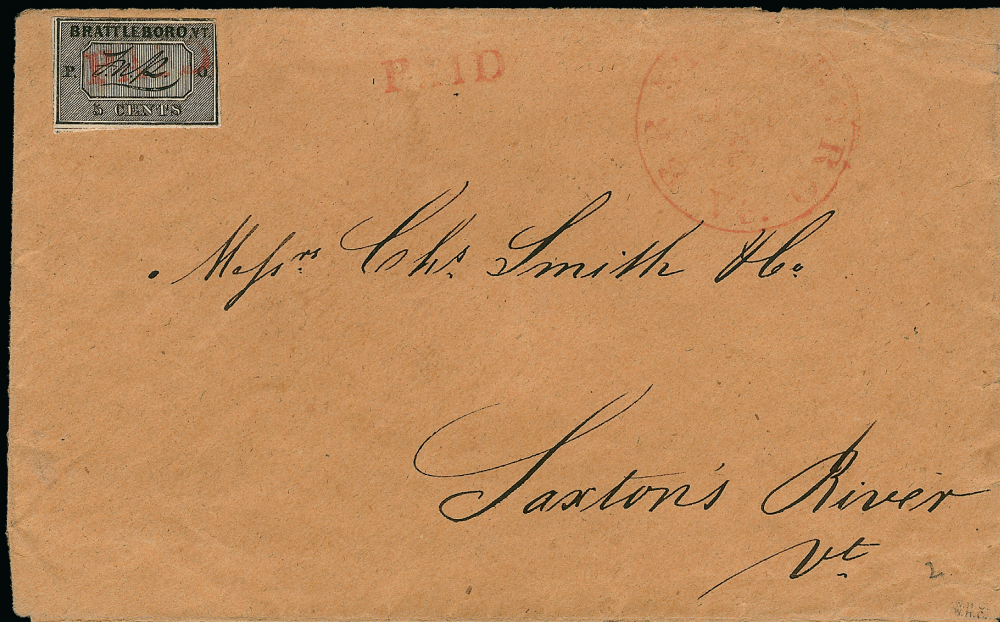 BRATTLEBORO VT.
P. O.
5 CENTS
PAID
Messrs Chs. Smith & Co.
Saxton's River
Vt.
2